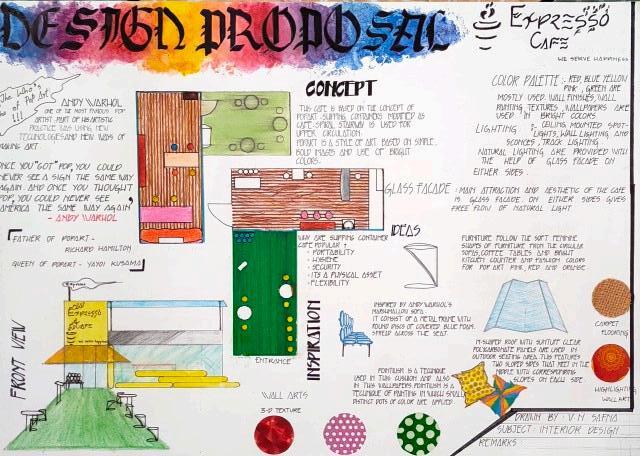 DESIGN PROPOSAL
EXPRESSO
CAFE
WE SERVE HAPPINESS
The Who's
Who of Pop Art
!!!
ANDY WARHOL
ONE OF THE MOST FAMOUS POP
ARTIST. PART OF HIS ARTISTIC
PRACTICE WAS USING NEW
TECHNOLOGIES AND NEW WAYS OF
MAKING ART
ONCE YOU "GOT" POP, YOU COULD
NEVER SEE A SIGN THE SAME WAY
AGAIN. AND ONCE YOU THOUGHT
POP, YOU COULD NEVER SEE
AMERICA THE SAME WAY AGAIN
- ANDY WARHOL
FATHER OF POPART -
RICHARD HAMILTON
QUEEN OF POPART - YAYOI KUSAMA
CONCEPT
THIS CAFE IS BASED ON THE CONCEPT OF
POPART. SHIPPING CONTAINERS MODIFIED AS
CAFE. SPIRAL STAIRWAY IS USED FOR
UPPER CIRCULATION.
POPART IS A STYLE OF ART BASED ON SIMPLE,
BOLD IMAGES AND USE OF BRIGHT
COLORS.
COLOR PALETTE : RED, BLUE YELLOW
PINK, GREEN ARE
MOSTLY USED. WALL FINISHES, WALL
PAINTING, TEXTURES, WALLPAPERS ARE
USED IN BRIGHT COLORS
LIGHTING : CEILING MOUNTED SPOT-
LIGHTS, WALL LIGHTING, AND
SCONCES, TRACK LIGHTING
NATURAL LIGHTING ARE PROVIDED WITH
THE HELP OF GLASS FACADE ON
EITHER SIDES.
GLASS FACADE : MAIN ATTRACTION AND AESTHETIC OF THE CAFE
IS GLASS FACADE ON EITHER SIDES GIVES
FREE FLOW OF NATURAL LIGHT
WHY ARE SHIPPING CONTAINER
CAFE POPULAR ?
- PORTABILITY
- HYGIENE
- SECURITY
- ITS A PHYSICAL ASSET
- FLEXIBILITY
IDEAS
FURNITURE FOLLOW THE SOFT FEMININE
SHAPES OF FURNITURE FROM THE CIRCULAR
SOFAS, COFFEE TABLES AND BRIGHT
KITCHEN COUNTER AND FANDOM COLORS
FOR POP ART PINK, RED AND ORANGE
INSPIRATION
INSPIRED BY ANDY WARHOL'S
MARSHMALLOW SOFA.
IT CONSIST OF A METAL FRAME WITH
ROUND DISCS OF COVERED BLUE FOAM.
SPREAD ACROSS THE SEAT.
POINTILISM IS A TECHNIQUE
USED IN THIS CUSHION AND ALSO
IN THIS WALLPAPERS. POINTILISM IS A
TECHNIQUE OF PAINTING IN WHICH SMALL
DISTINCT DOTS OF COLOR ARE APPLIED.
SHAPED ROOF WITH CLEAR
POLYCARBONATE PANELS ARE USED IN
OUTDOOR SEATING AREA. THIS FEATURES
TWO SLOPED SIDES THAT MEET IN THE
MIDDLE WITH CORRESPONDING
SLOPES ON EACH SIDE
CARPET
FLOORING
HIGHLIGHTING
WALL ART
FRONT VIEW
EXPRESSO
CAFE
ENTRANCE
WALL ARTS
3-D TEXTURE
DRAWN BY : V N SAFNA
SUBJECT : INTERIOR DESIGN
REMARKS